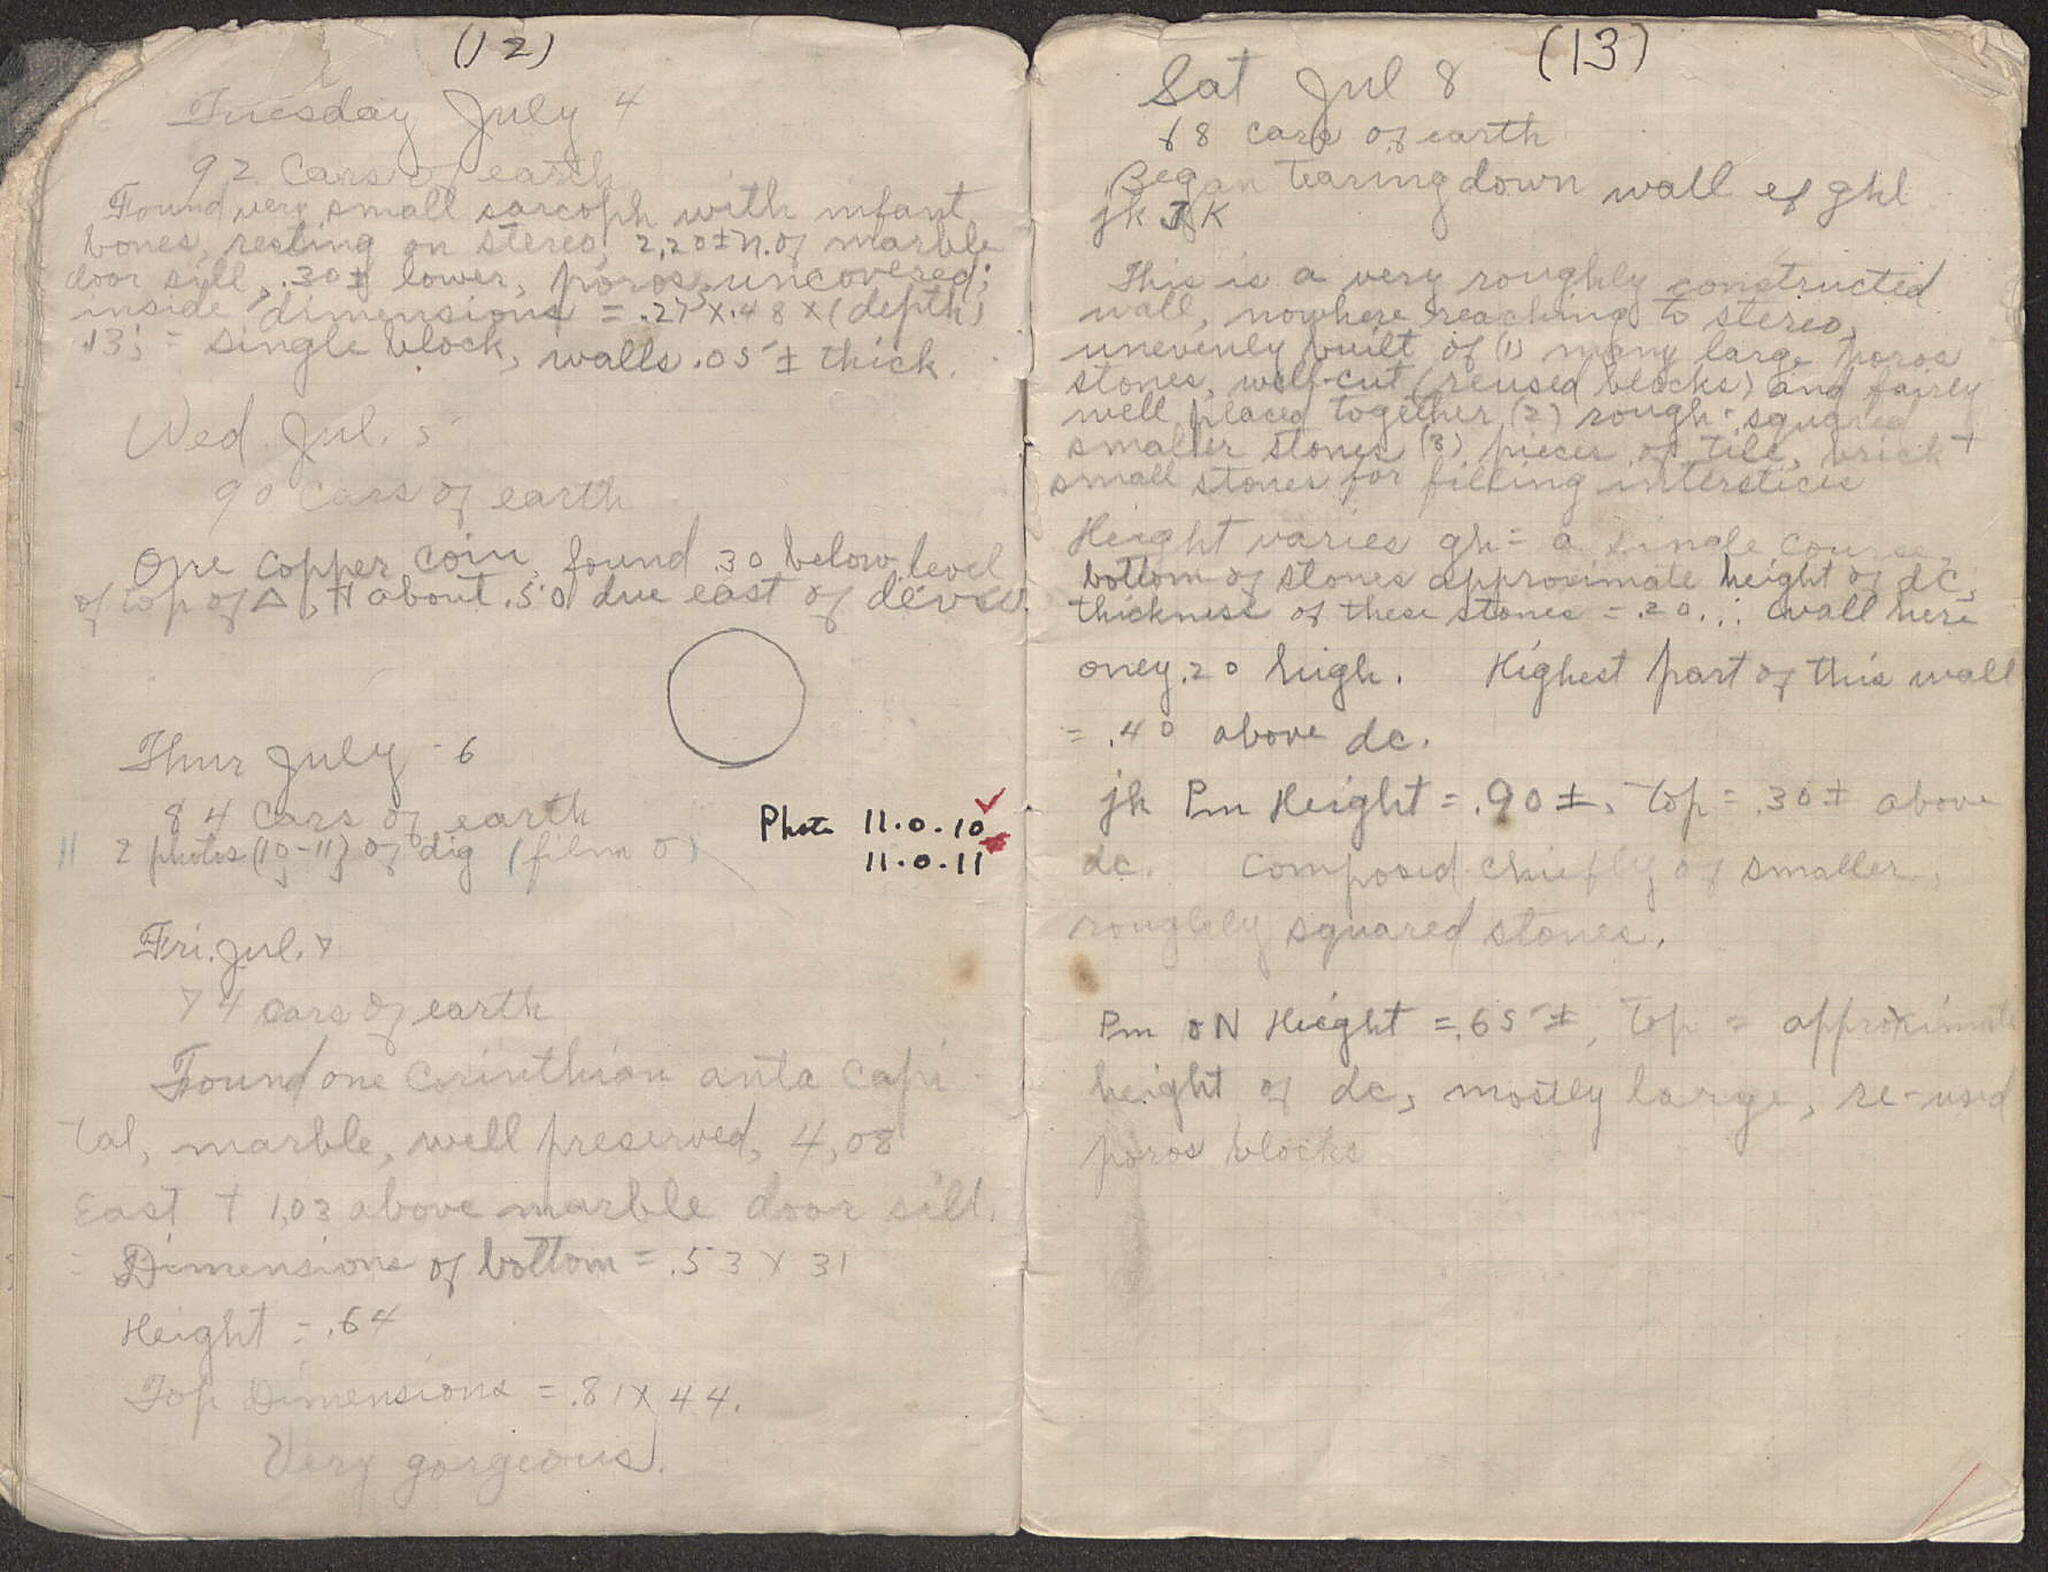 (12)
Tuesday July 4
92 Cars of earth
Found very small sarcoph with infant
bones, resting on stereo, 2,20± N. of marble
door sill, .30± lower, poros, uncovered;
inside dimensions = .27 x .48 x (depth)
.13; = single block, walls .05± thick.
Wed. Jul. 5
90 Cars of earth
One copper coin, found .30 below level
of top of Δ, + about .50 due east of
Thur July 6
84 Cars of earth
Photo 11.0.10
11 2 photos (10-11) of dig (film 0)
11.0.11
Fri. Jul. 7
74 cars of earth
Found one Corinthian anta capi-
tal, marble, well preserved, 4,08
East + 1,03 above marble door sill.
Dimensions of bottom = .53 x 31
Height = .64
Top Dimensions = .81 x 44.
Very gorgeous.
(13)
Sat Jul 8
68 cars of earth
Began tearing down wall ef ghl
jk JK
This is a very roughly constructed
wall, nowhere reaching to stereo,
unevenly built of (1) many large poros
stones, well-cut (reused blocks) and fairly
well placed together (2) rough-squared
smaller stones (3) pieces of tile, brick +
small stones for filling interstices
Height varies gh = a single course,
bottom of stones approximate height of dc,
thickness of these stones = .20 ∴ wall here
only .20 high. Highest part of this wall
= .40 above dc.
jk Pm Height = .90±, top = .30± above
dc. Composed chiefly of smaller,
roughly squared stones.
Pm oN Height = .65±, top = approximate
height of dc, mostly large, re-used
poros blocks